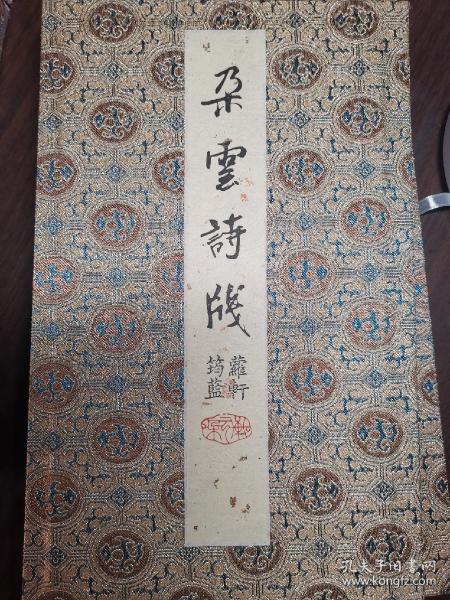 朵雲詩牋
蘿軒
筠藍
孔夫子旧书网
www.kongfz.com